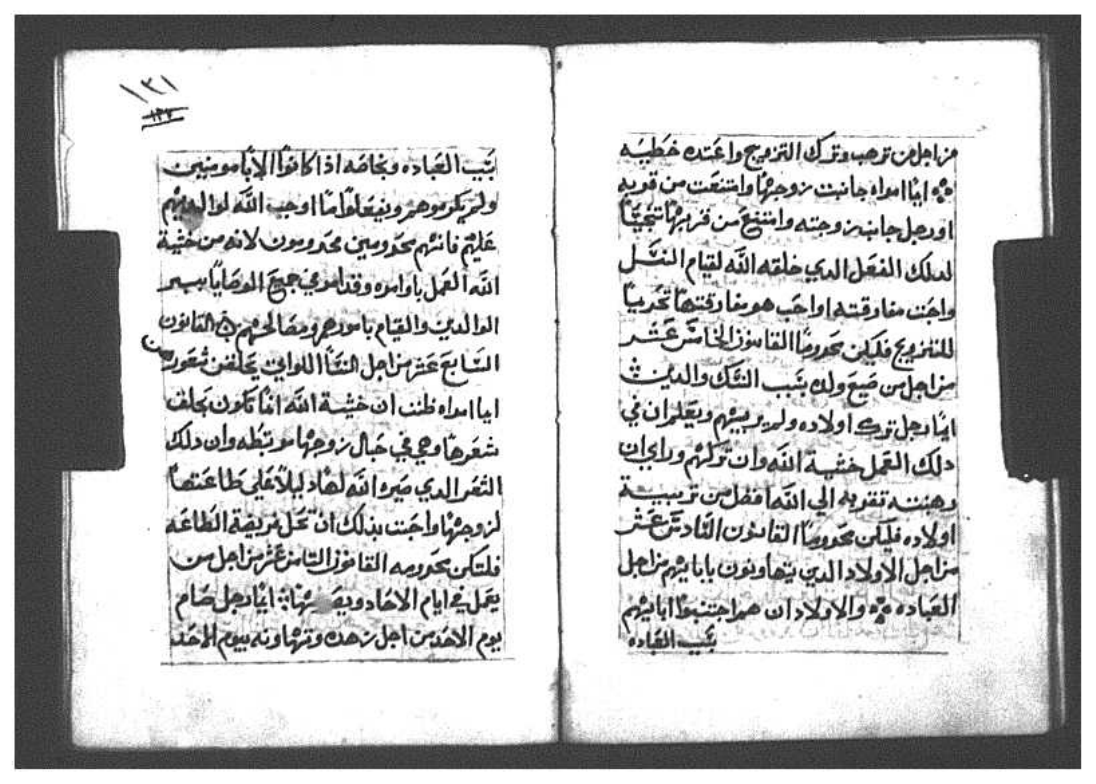 من اجل من ترهب وترك التزويج واعتده خطيه
ايما امراه جانبت زوجها وامتنعت من قربه
او رجل جانب زوجته وامتنع من قربها تنجيسًا
لدلك الفعل الدي خلقه الله لقيام النسل
واجبت مفارقته او احب هو مفارقتها تحريمًا
للتزويج فليكن محرومًا القانون الخامس عشر
من اجل من ضيع ولده بسبب النسك والدين
ايما رجل ترك اولاده ولم يربيهم ويعلم ان في
دلك العمل خشية الله وان تركهم وراي ان
رهبنته تقربه الي الله افضل من تربيية
اولاده فليكن محرومًا القانون السادس عشر
من اجل الاولاد الدين يتهاونون بابايهم من اجل
العباده والاولاد ان هم اجتنبوا ابايهم
بسبب العباده
١٣١
١٣٢
بسبب العباده وبخاصه ادا كانوا الابا مومنين
ولم يكرموهم ويفعلوا ما اوجب الله لوالديهم
عليهم فانهم محرومين محرومون لانه من خشية
الله العمل باوامره وقد امر في جميع الوصايا ببر
الوالدين والقيام بامورهم ومصالحهم القانون
السابع عشر من اجل النسا اللواتي يحلقن شعورهن
ايما امراه ظنت ان خشية الله انما تكون بحلق
شعرها وهي في حبال زوجها مرتبطه وان دلك
الشعر الدي صيره الله لها دليلاً علي طاعتها
لزوجها واجبت بدلك ان تحل فريضة الطاعه
فلتكن محرومه القانون الثامن عشر من اجل من
يعمل في ايام الاحاد ايما رجل صام
يوم الاحد من اجل زهده وتهاونه بيوم الاحد